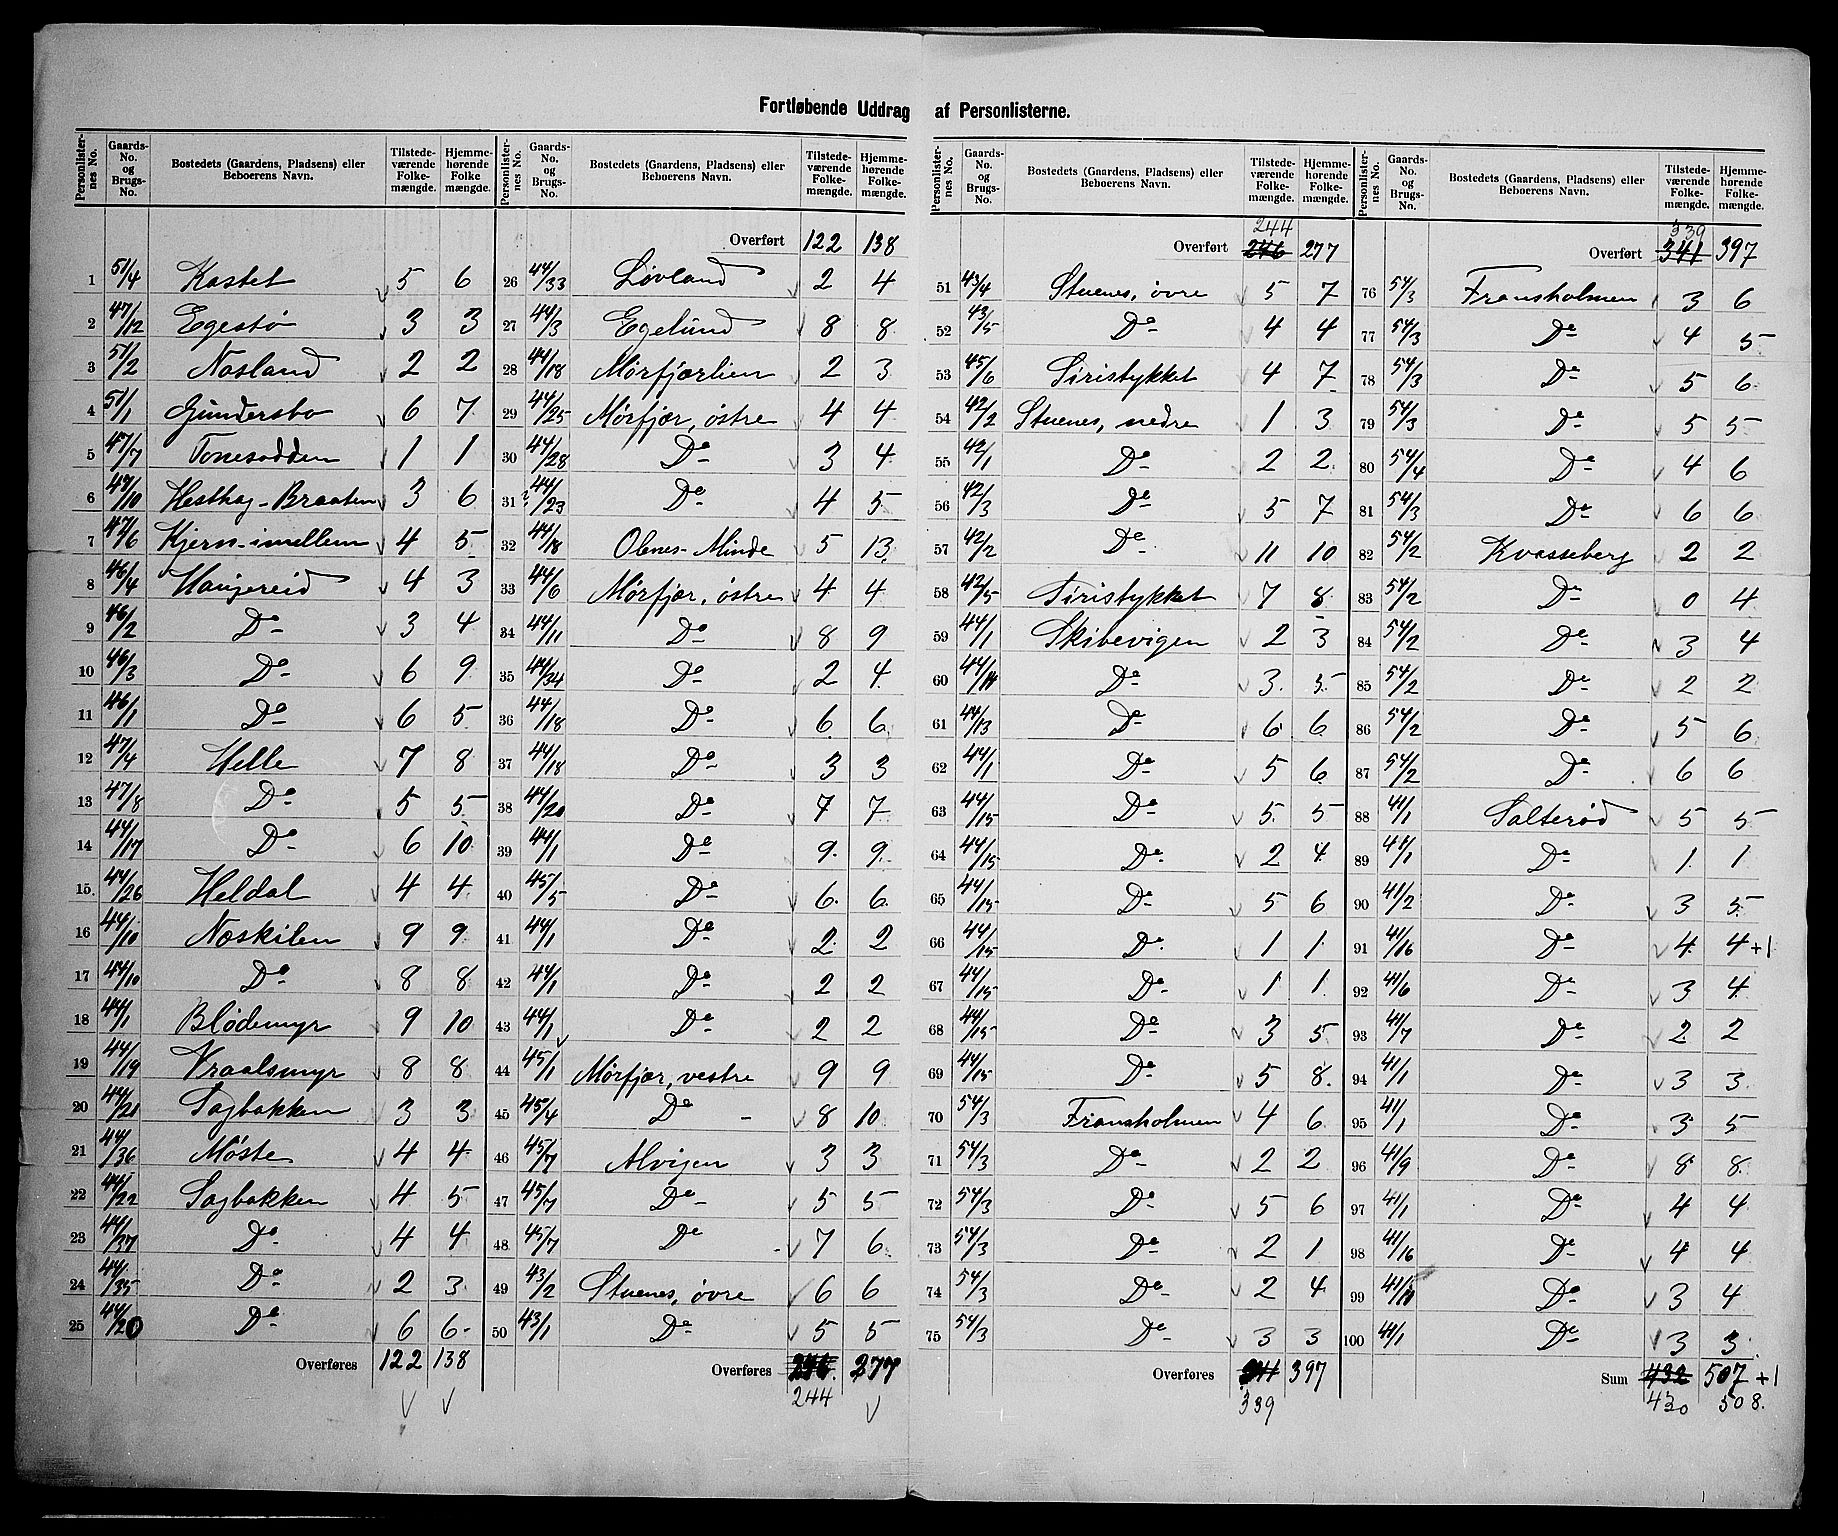 Fortløbende Uddrag af Personlisterne.
Personlisternes No. | Gaards-No. og Brugs-No. | Bostedets (Gaardens, Pladsens) eller Beboerens Navn. | Tilstedeværende Folkemængde. | Hjemmehørende Folkemængde.
1 51/4 Kastet 5 6
2 47/12 Egestø 3 3
3 51/2 Nosland 2 2
4 51/1 Gundersbo 6 7
5 47/7 Tonesodden 1 1
6 47/10 Hesthag-Braaten 3 6
7 47/6 Kjern-imellem 4 5
8 46/4 Haugereid 4 3
9 46/2 Do 3 4
10 46/3 Do 6 9
11 46/1 Do 6 5
12 47/4 Helle 7 8
13 47/8 Do 5 5
14 44/17 Do 6 10
15 44/26 Heldal 4 4
16 44/10 Noskilen 9 9
17 44/10 Do 8 8
18 44/1 Blødemyr 9 10
19 44/19 Vraalsmyr 8 8
20 44/21 Sagbakken 3 3
21 44/36 Møste 4 4
22 44/22 Sagbakken 4 5
23 44/37 Do 4 4
24 44/35 Do 2 3
25 44/20 Do 6 6
Overføres 122 138
Overført 122 138
26 44/33 Løvland 2 4
27 44/3 Egelund 8 8
28 44/18 Mørfjærlien 2 3
29 44/25 Mørfjær, østre 4 4
30 44/28 Do 3 4
31 44/23 Do 4 5
32 44/18 Olnes-Minde 5 13
33 44/6 Mørfjær, østre 4 4
34 44/11 Do 8 9
35 44/34 Do 2 4
36 44/18 Do 6 6
37 44/18 Do 3 3
38 44/20 Do 7 7
39 44/1 Do 9 9
40 45/5 Do 6 6
41 44/1 Do 2 2
42 44/1 Do 2 2
43 44/1 Do 2 2
44 45/1 Mørfjær, vestre 9 9
45 45/4 Do 8 10
46 45/7 Alvigen 3 3
47 45/7 Do 5 5
48 45/7 Do 7 6
49 43/2 Stuenes, øvre 6 6
50 43/1 Do 5 5
Overføres 246 277
244
244
Overført 246 277
51 43/4 Stuenes, øvre 5 7
52 43/5 Do 4 4
53 45/6 Siristykket 4 7
54 42/2 Stuenes, nedre 1 3
55 42/1 Do 2 2
56 42/3 Do 5 7
57 42/2 Do 11 10
58 42/5 Siristykket 7 8
59 44/1 Skibevigen 2 3
60 44/14 Do 3 5
61 44/13 Do 6 6
62 44/1 Do 5 6
63 44/15 Do 5 5
64 44/15 Do 2 4
65 44/15 Do 5 6
66 44/15 Do 1 1
67 44/15 Do 1 1
68 44/15 Do 3 5
69 44/15 Do 5 8
70 54/3 Fransholmen 4 6
71 54/3 Do 2 2
72 54/3 Do 5 6
73 54/3 Do 2 1
74 54/3 Do 2 4
75 54/3 Do 3 3
Overføres 341 397
339
339
Overført 341 397
76 54/3 Fransholmen 3 6
77 54/3 Do 4 5
78 54/3 Do 5 6
79 54/3 Do 5 5
80 54/4 Do 4 6
81 54/3 Do 6 6
82 54/2 Kvasseberg 2 2
83 54/2 Do 0 4
84 54/2 Do 3 4
85 54/2 Do 2 2
86 54/2 Do 5 6
87 54/2 Do 6 6
88 41/1 Salterød 5 5
89 41/1 Do 1 1
90 41/2 Do 3 5
91 41/16 Do 4 4+1
92 41/6 Do 3 4
93 41/7 Do 2 2
94 41/1 Do 3 3
95 41/1 Do 3 5
96 41/9 Do 8 8
97 41/1 Do 4 4
98 41/16 Do 4 4
99 Do 3 4
100 41/1 Do 3 3
Sum 432 507 +1
430 508.